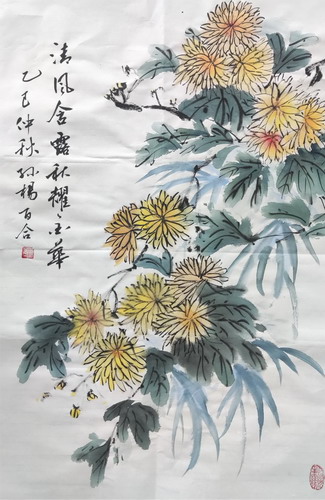 清风含露秋耀金華
乙巳仲秋孙杨百合